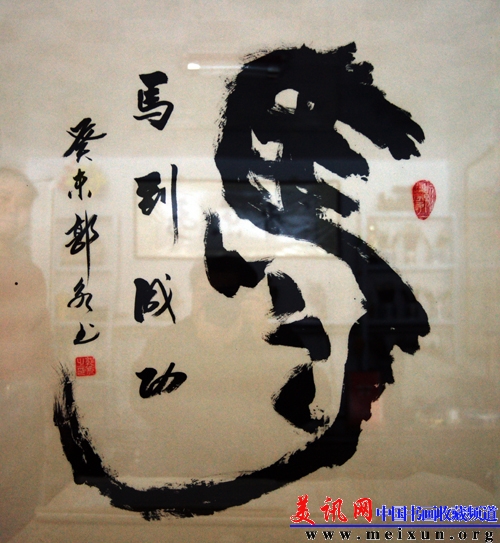 馬
馬到成功
癸未
美讯网 中国书画收藏频道
www.meixun.org